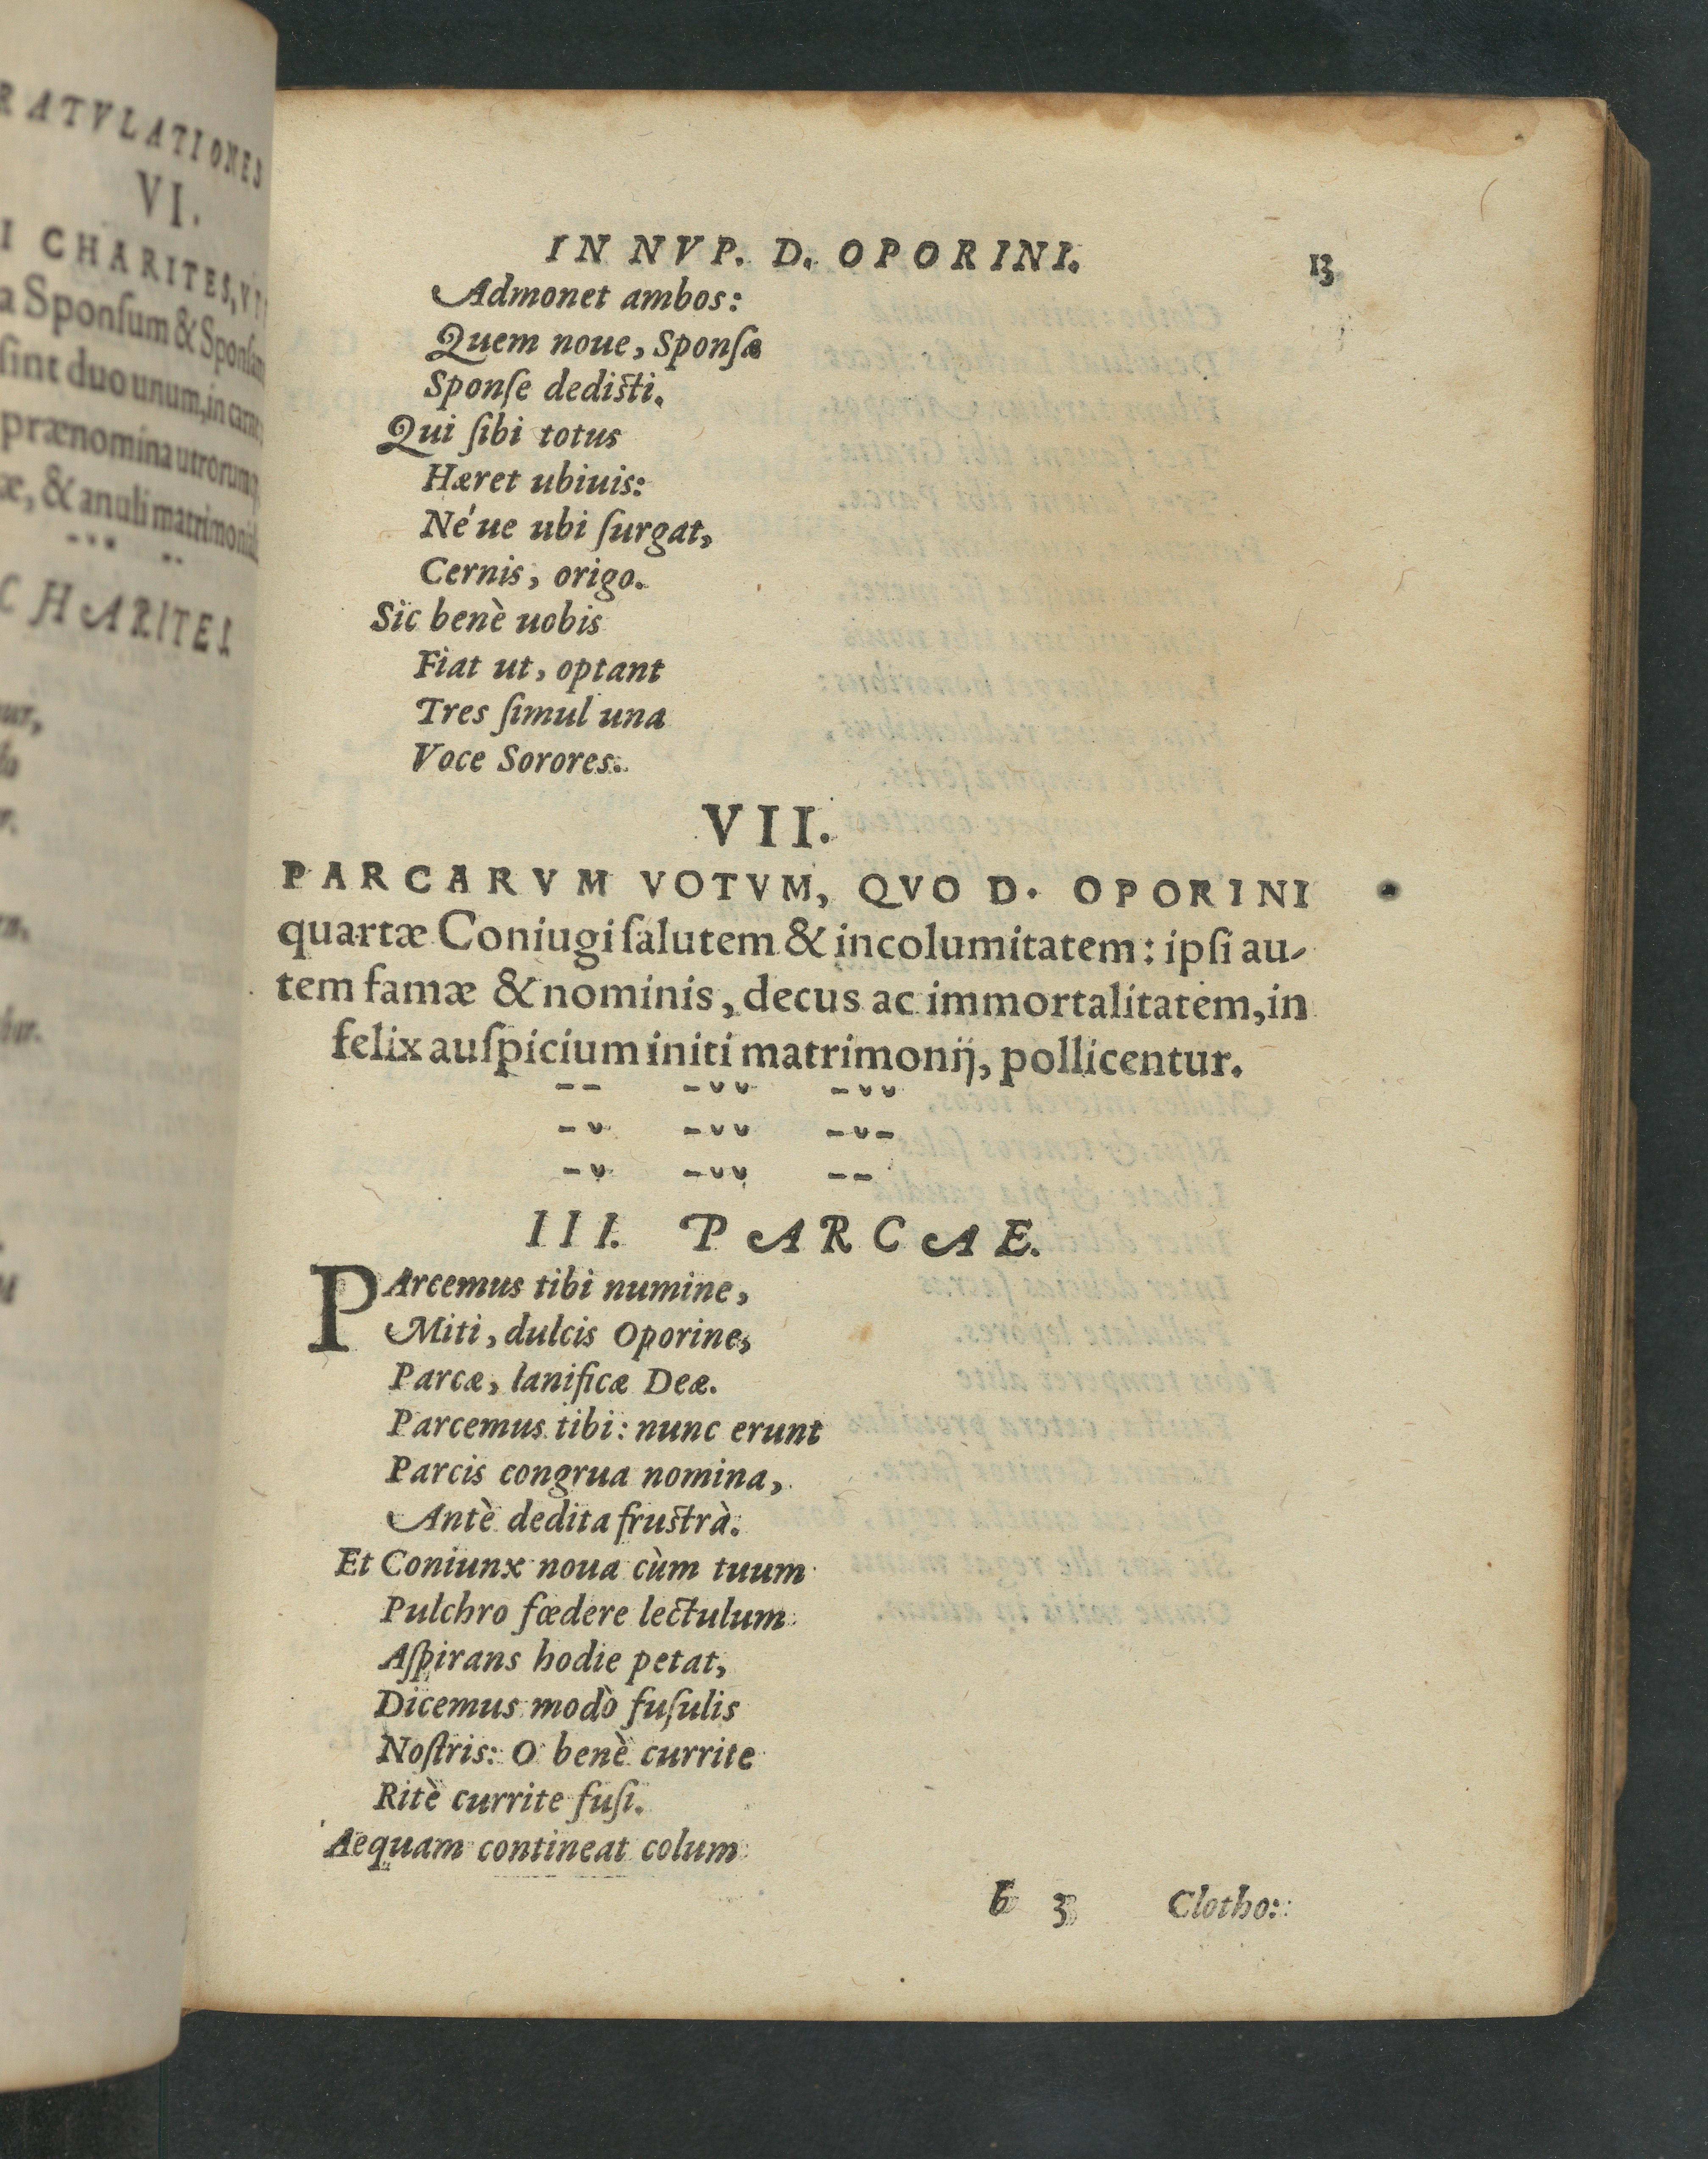 RATVLATIONES
VI.
I CHARITES, VT
a Sponſum & Sponſam
ſint duo unum, in carne
prænomina utrorumq;
æ, & anuli matrimonial
CHARITES
IN NVP. D. OPORINI. 13
Admonet ambos:
Quem noue, Sponſæ
Sponſe dediſti.
Qui ſibi totus
Hæret ubiuis:
Né ue ubi ſurgat,
Cernis, origo.
Sic benè uobis
Fiat ut, optant
Tres ſimul una
Voce Sorores.
VII.
PARCARVM VOTVM, QVO D. OPORINI
quartæ Coniugi ſalutem & incolumitatem: ipſi au-
tem famæ & nominis, decus ac immortalitatem, in
felix auſpicium initi matrimonij, pollicentur.
-- -υυ -υυ
-υ -υυ -υ-
-υ -υυ --
III. PARCAE.
PArcemus tibi numine,
Miti, dulcis Oporine,
Parcæ, lanificæ Deæ.
Parcemus tibi: nunc erunt
Parcis congrua nomina,
Antè dedita fruſtrà.
Et Coniunx noua cùm tuum
Pulchro fœdere lectulum
Aſpirans hodie petat,
Dicemus modò fuſulis
Noſtris: O benè currite
Ritè currite fuſi.
Aequam contineat colum
b 3 Clotho: